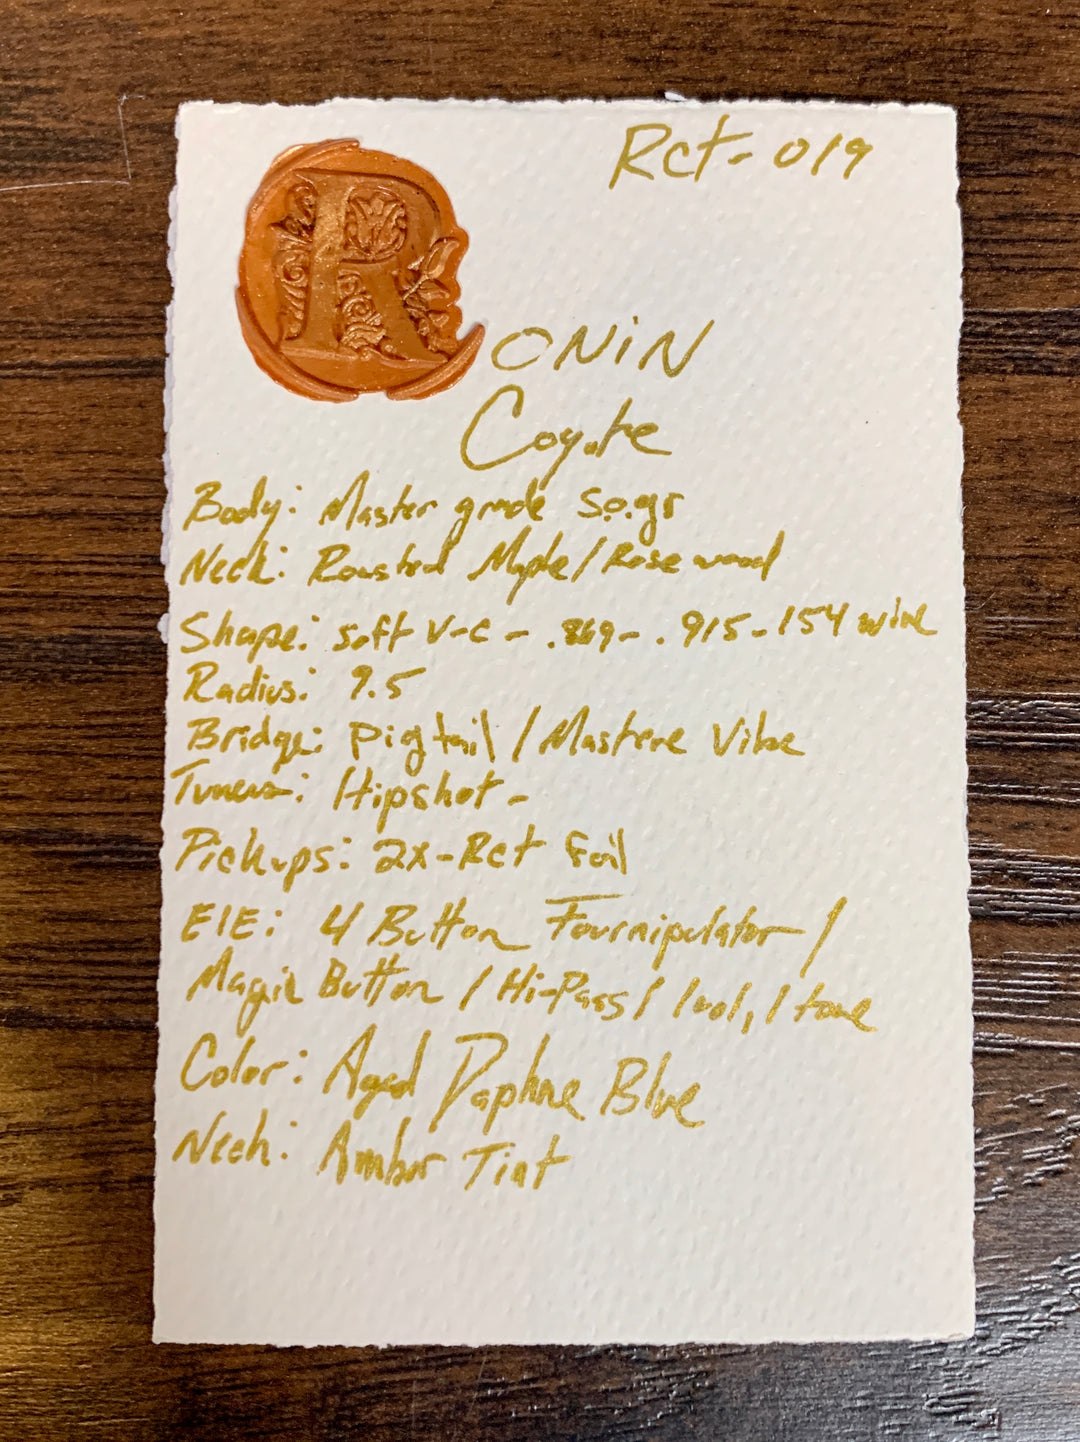 Rct-019
RONiN
Coyote
Body: Master grade S.o.gs
Neck: Roasted Maple/Rosewood
Shape: soft V-C - .869 - .915 - 1.54 wide
Radius: 9.5
Bridge: Pigtail / Mastere Vibe
Tuners: Hipshot -
Pickups: 2x-Rct Foil
ElE: 4 Button Fournipulator /
Magic Button / Hi-Pass / 1vol, 1 tone
Color: Aged Daphne Blue
Neck: Amber Tint